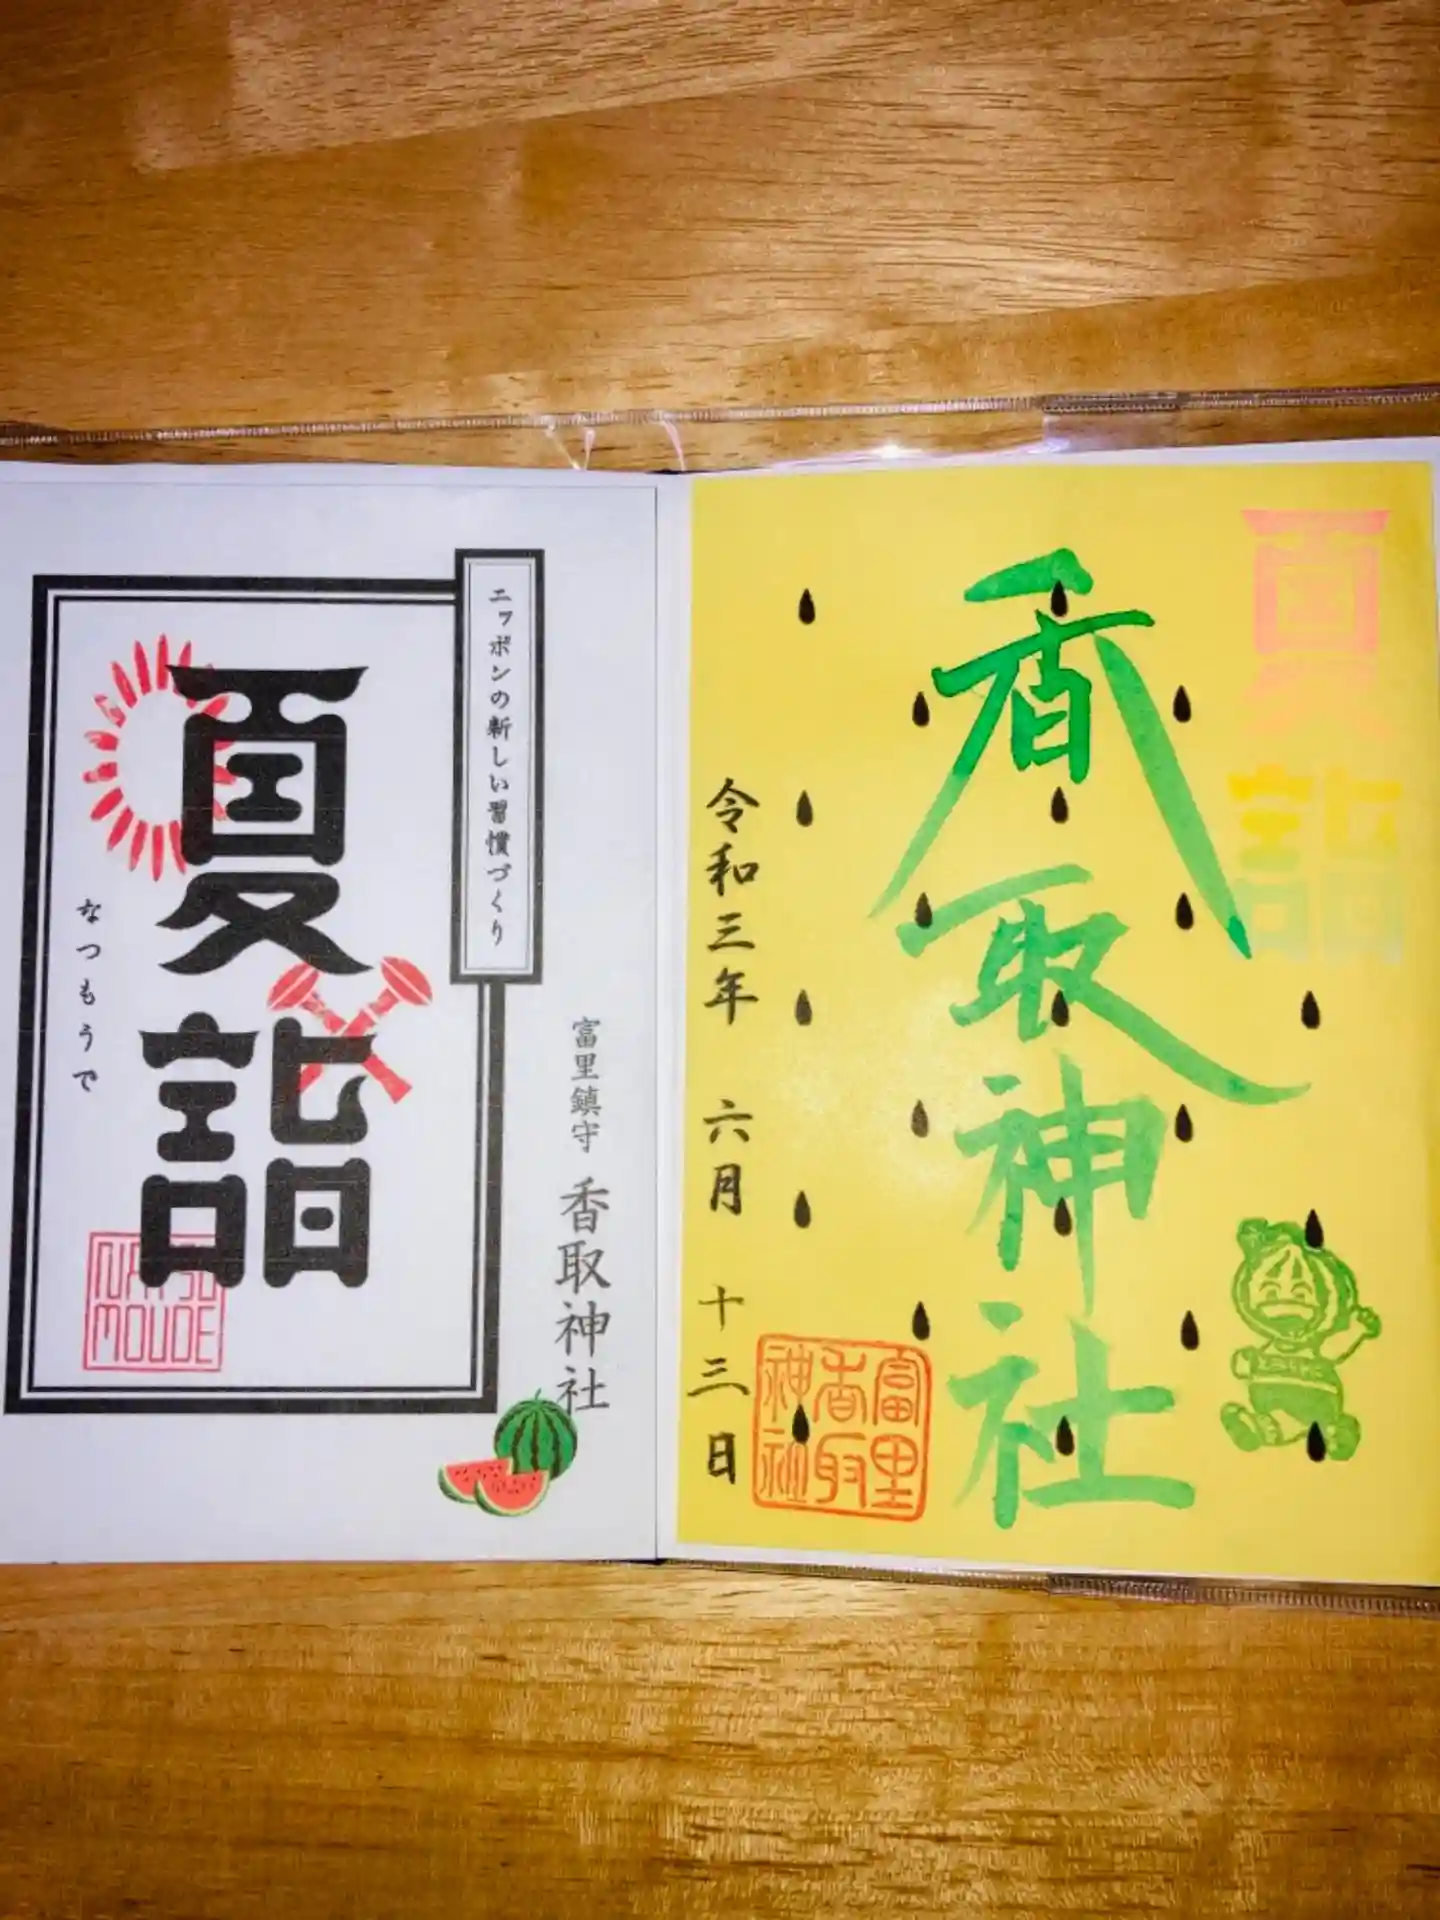 夏詣
香取神社
富里香取神社
令和三年 六月 十三日
ニッポンの新しい習慣づくり
夏詣
なつもうで
NATSU
MOUDE
富里鎮守 香取神社